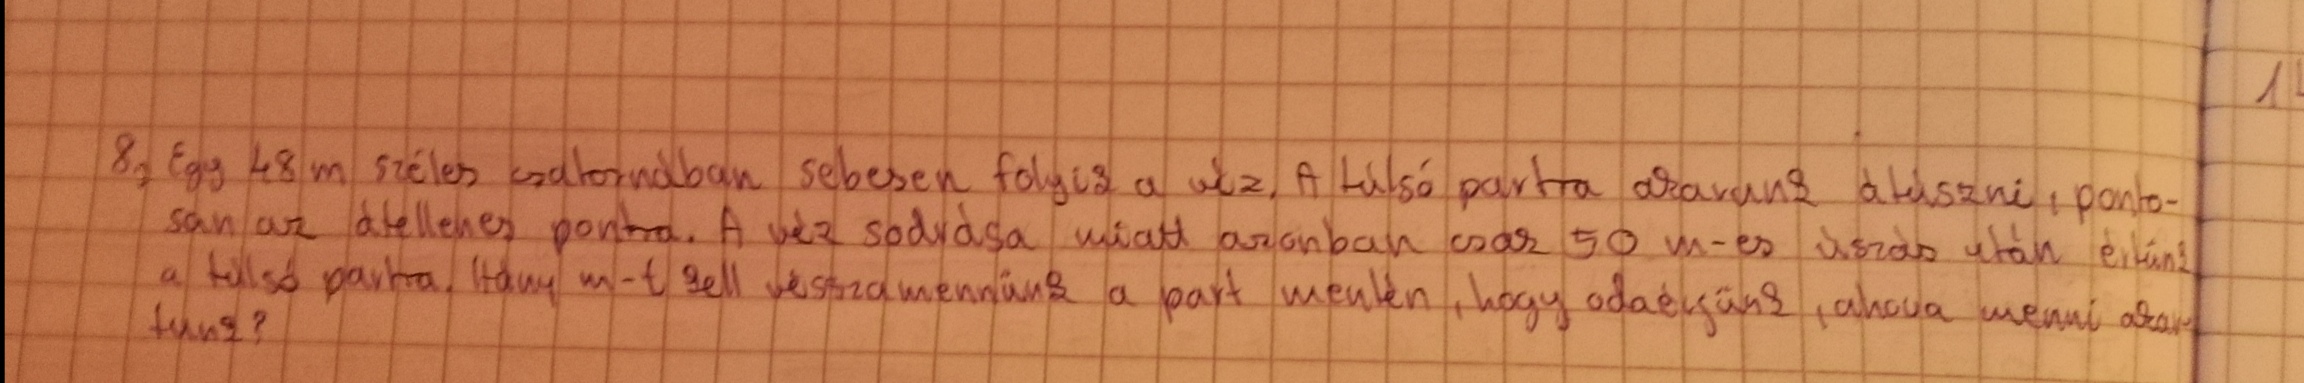 8, Egy 48 m széles csatornában sebesen folyik a víz. A túlsó partra akarunk átúszni, ponto-
san az átellenes pontra. A víz sodrása miatt azonban csak 50 m-es úszás után érünk
a túlsó partra. Hány m-t kell visszamennünk a part mentén, hogy odaérjünk, ahova menni akar-
tunk?